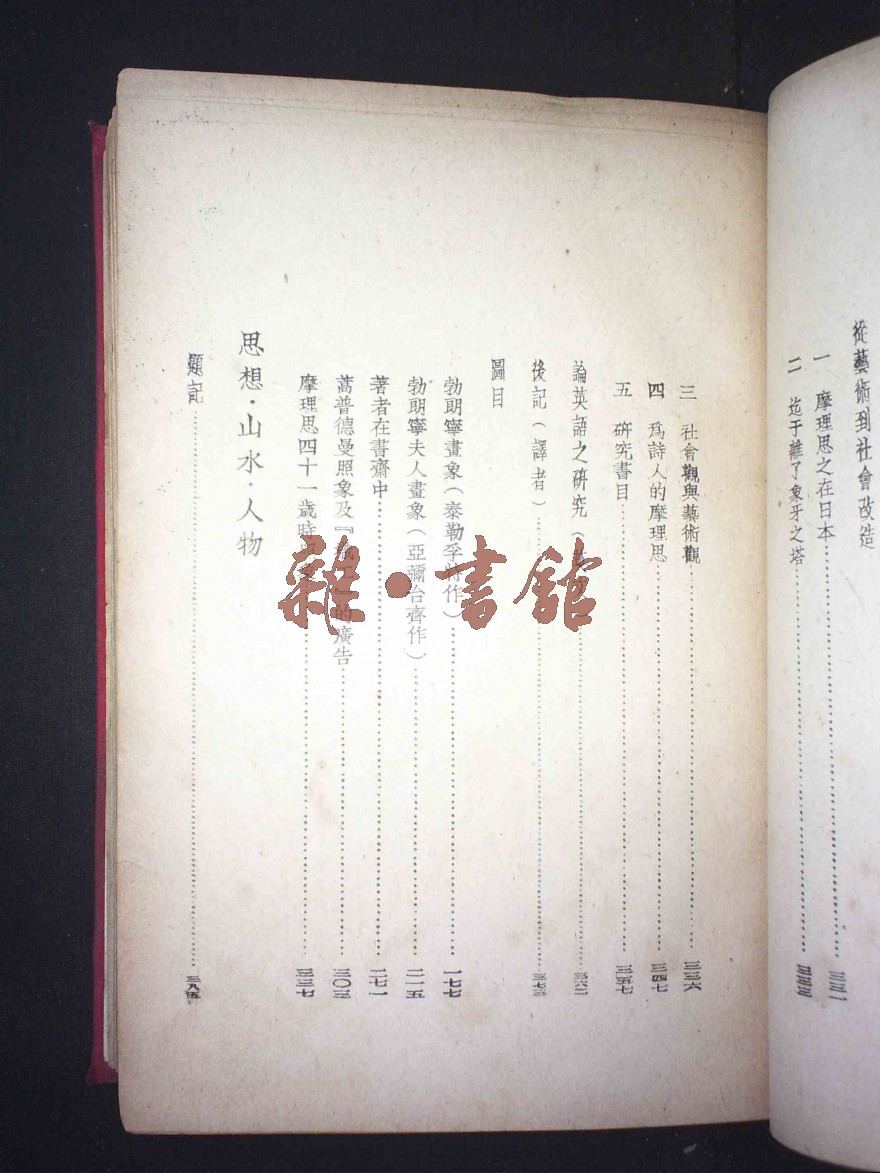 從藝術到社會改造
一 摩理思之在日本
二 迄于離了象牙之塔
三 社會觀與藝術觀 三三六
四 爲詩人的摩理思 三四七
五 硏究書目 三五七
論英語之硏究 三六二
後記(譯者) 三七三
圖目
勃朗寧畫象(泰勒孚特作) 一七七
勃朗寧夫人畫象(亞彌台齊作) 二一五
著者在書齋中 二七一
蒿普德曼照象及 的廣告 三〇三
摩理思四十一歲時 三三七
思想·山水·人物
題記 三八五
雜·書館